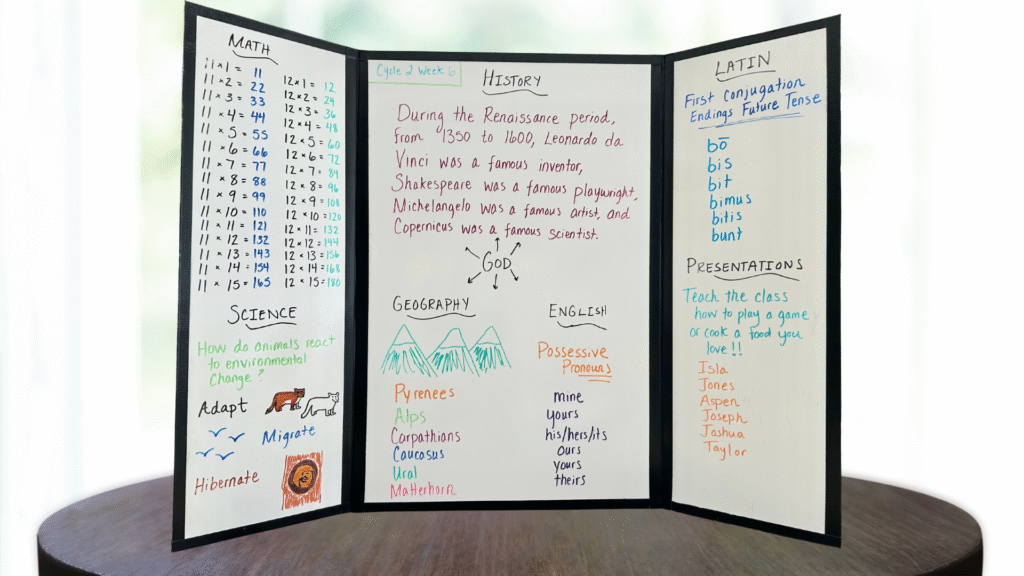 MATH
11 × 1 = 11
11 × 2 = 22
11 × 3 = 33
11 × 4 = 44
11 × 5 = 55
11 × 6 = 66
11 × 7 = 77
11 × 8 = 88
11 × 9 = 99
11 × 10 = 110
11 × 11 = 121
11 × 12 = 132
11 × 13 = 143
11 × 14 = 154
11 × 15 = 165
12 × 1 = 12
12 × 2 = 24
12 × 3 = 36
12 × 4 = 48
12 × 5 = 60
12 × 6 = 72
12 × 7 = 84
12 × 8 = 96
12 × 9 = 108
12 × 10 = 120
12 × 11 = 132
12 × 12 = 144
12 × 13 = 156
12 × 14 = 168
12 × 15 = 180
SCIENCE
How do animals react
to environmental
Change?
Adapt
Migrate
Hibernate
Cycle 2 Week 6
HISTORY
During the Renaissance period,
from 1350 to 1600, Leonardo da
Vinci was a famous inventor,
Shakespeare was a famous playwright,
Michelangelo was a famous artist, and
Copernicus was a famous scientist.
GOD
GEOGRAPHY
Pyrenees
Alps
Carpathians
Caucasus
Ural
Matterhorn
ENGLISH
Possessive
Pronouns
mine
yours
his/hers/its
ours
yours
theirs
LATIN
First Conjugation
Endings Future Tense
bō
bis
bit
bimus
bitis
bunt
PRESENTATIONS
Teach the class
how to play a game
or cook a food you
love!!
Isla
Jones
Aspen
Joseph
Joshua
Taylor